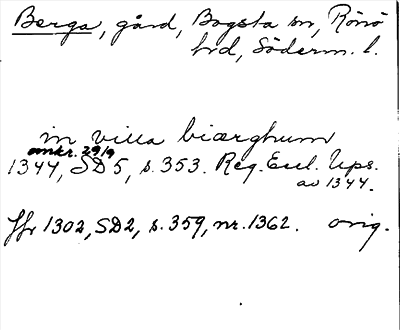 Berga, gård, Bogsta sn, Rönö
hrd, Söderm. l.
in villa biærghum
omkr. 29/9
1344, SD 5, s. 353. Reg. Eccl. Ups.
av 1344.
Jfr 1302, SD2, s. 359, nr. 1362. orig.